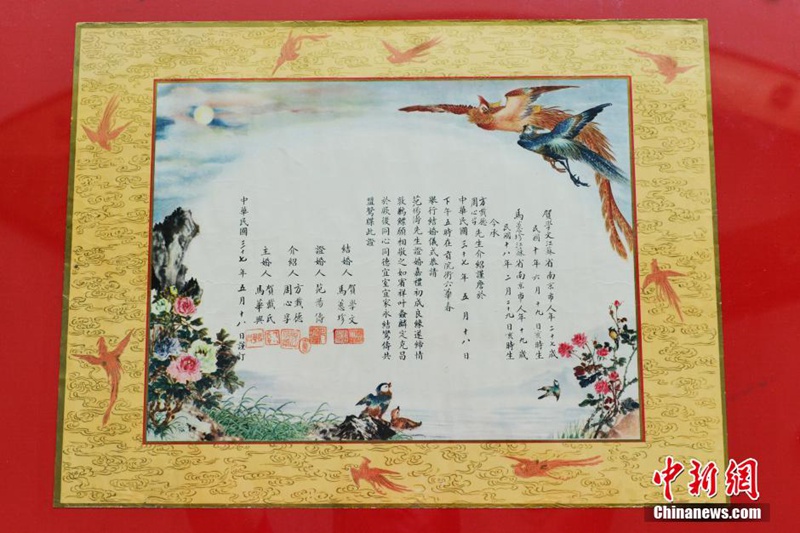 賀學文江蘇省南京市人年二十七歲
民國十年六月十九日亥時生
馬蕙珍江蘇省南京市人年十九歲
民國十八年二月二十九日亥時生
今承
方戴德
周心宇先生介紹謹詹於
中華民國三十七年五月十八日
下午五時在貢院街六華春
舉行結婚儀式恭請
范希濤先生證婚嘉禮初成良緣遂締情
敦鶼鰈願相敬之如賓祥叶螽麟定克昌
於厥後同心同德宜室宜家永結鸞儔共
盟鴛牒此證
結婚人 賀學文
馬蕙珍
證婚人 范希濤
介紹人 方戴德
周心宇
主婚人 賀戴氏
馬華興
中華民國三十七年五月十八日謹訂
中新网
Chinanews.com